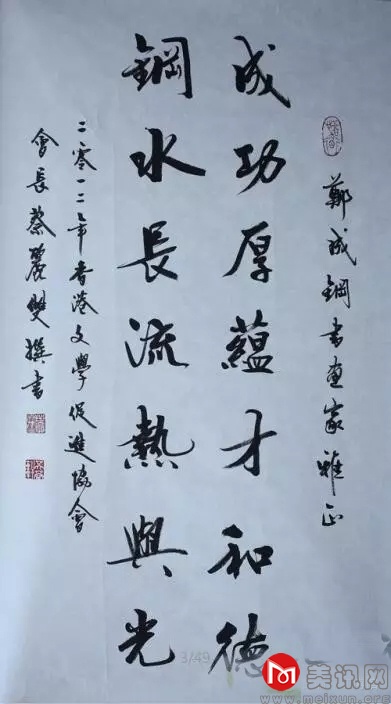 鄭成鋼書畫家雅正
成功厚蘊才和德
鋼水長流熱與光
二零一二年香港文學促進協會
會長蔡麗雙撰書
3/49
美讯网
www.meixun.org